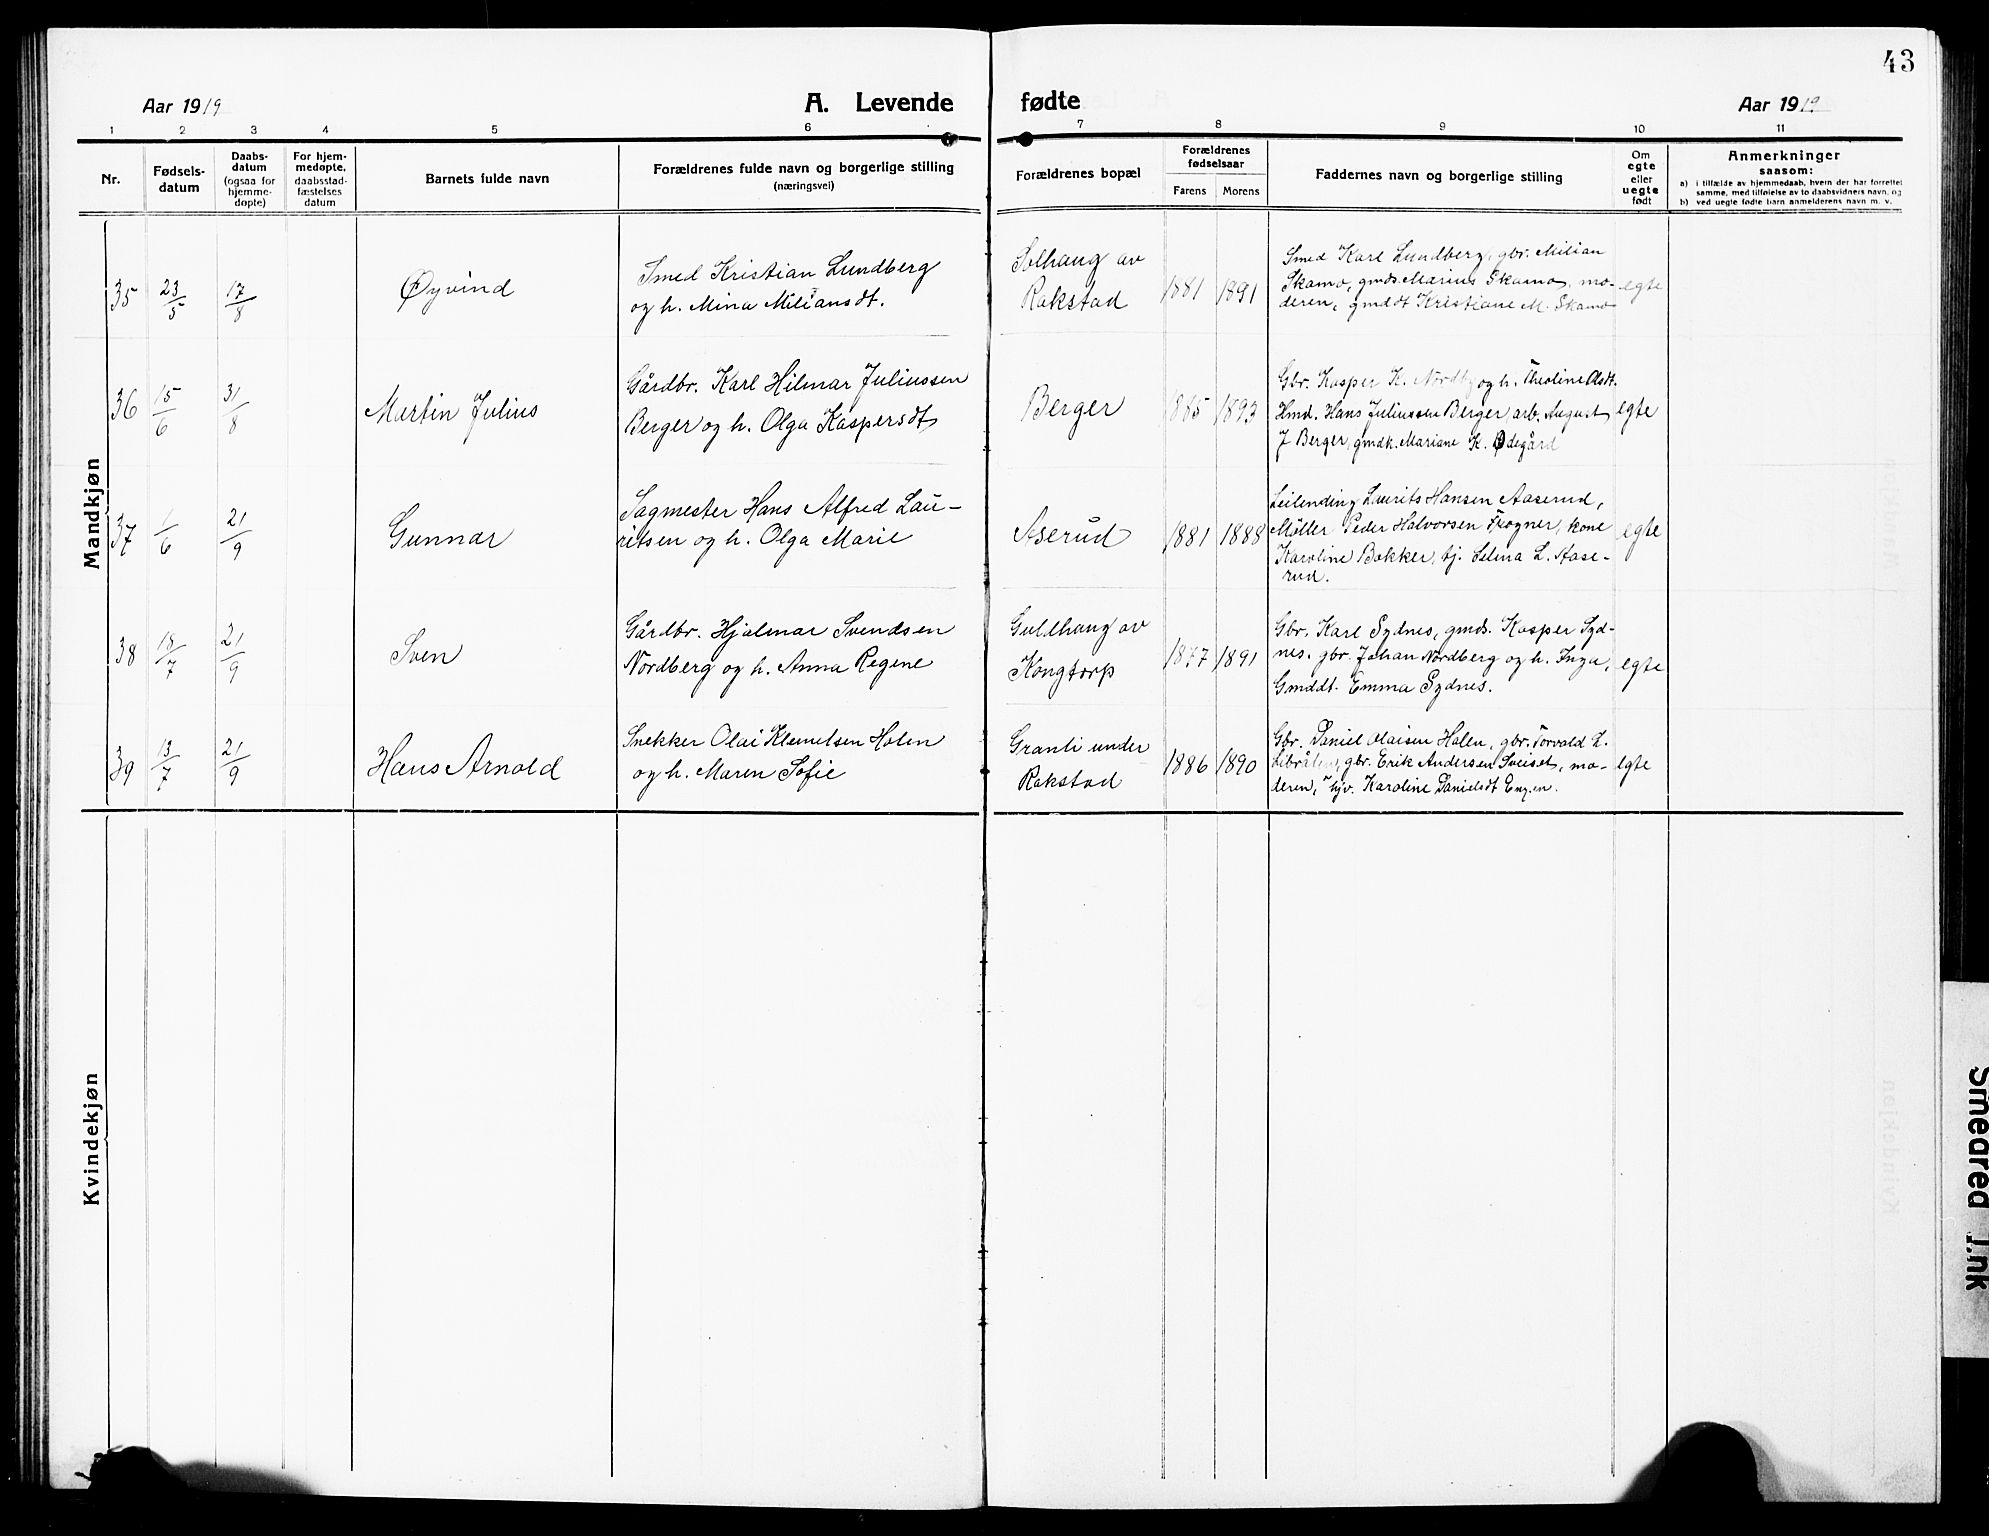 43
Aar 1919
A. Levende
fødte
Aar 1919
1 2 3 4 5 6 7 8 9 10 11
Nr.
Fødsels-
datum
Daabs-
datum
(ogsaa for
hjemme-
døpte)
For hjem-
medøpte,
daabsstad-
fæstelses
datum
Barnets fulde navn
Forældrenes fulde navn og borgerlige stilling
(næringsvei)
Forældrenes bopæl
Forældrenes
fødselsaar
Farens Morens
Faddernes navn og borgerlige stilling
Om
egte
eller
uegte
født
Anmerkninger
saasom:
a) i tilfælde av hjemmedaab, hvem der har forrettet
samme, med tilføielse av to daabsvidners navn, og
b) ved uegte fødte barn anmelderens navn m. v.
Mandkjøn
35 23/5 17/8 Øyvind
Smed Kristian Lundberg
og h. Mina Miliansdt.
Solhaug av
Rakstad
1881 1891
Smed Karl Lundberg, gbr. Milian
Skamo, gmds. Marius Skamo, mo-
deren, gmdt Kristiane M. Skamo
egte
36 15/6 31/8 Martin Julius
Gårdbr. Karl Hilmar Juliussen
Berger og h. Olga Kaspersdt
Berger
1893
Gbr. Kasper K. Nordby og h. Theoline Olsdt.
Hmd. Hans Juliussen Berger arb. August
J Berger, gmdk. Mariane K. Ødegård
egte
37 1/6 21/9 Gunnar
Sagmester Hans Alfred Lau-
ritsen og h. Olga Marie
Aserud
1881 1888
Leilending Laurits Hansen Aaserud,
Møller Peder Halvorsen Frogner, kone
Karoline Bakker, tj. Selma L. Aase-
rud.
egte
38 18/7 21/9 Sven
Gårdbr. Hjalmar Svendsen
Nordberg og h. Anna Regine
Guldhaug av
Kongtorp
1877 1891
Gbr. Karl Sydnes, gmds. Kasper Syd-
nes. gbr. Johan Nordberg og h. Inga,
Gmddt. Emma Sydnes.
egte
39 13/7 21/9 Hans Arnold
Snekker Olai Klemetsen Holen
og h. Maren Sofie
Granli under
Rakstad
1886 1890
Gbr. Daniel Olaisen Holen, gbr. Torvald L.
gbr. Erik Andersen Sveiset, mo-
deren, hjv. Karoline Danielsdt Engen.
egte
Kvindekjøn
Smeared Ink